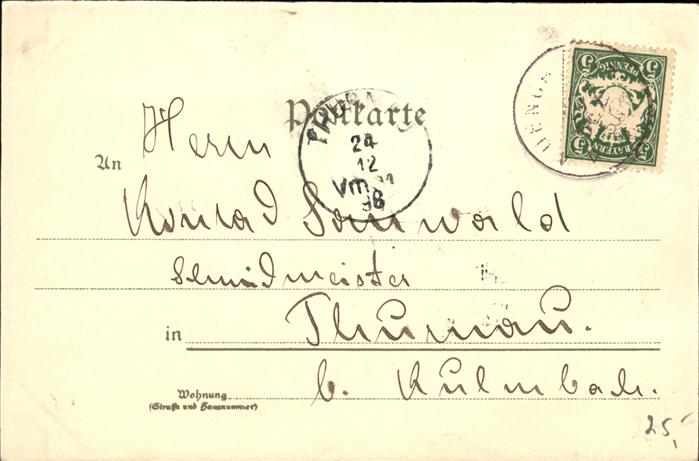 Postkarte
THURNAU
24
12
Vm
98
5 PFENNIG 5
5 BAYERN 5
Herrn
An
Konrad Sonnwald
Schmidmeister
in Thurnau.
b. Kulmbach.
Wohnung
(Straße und Hausnummer)
25,-